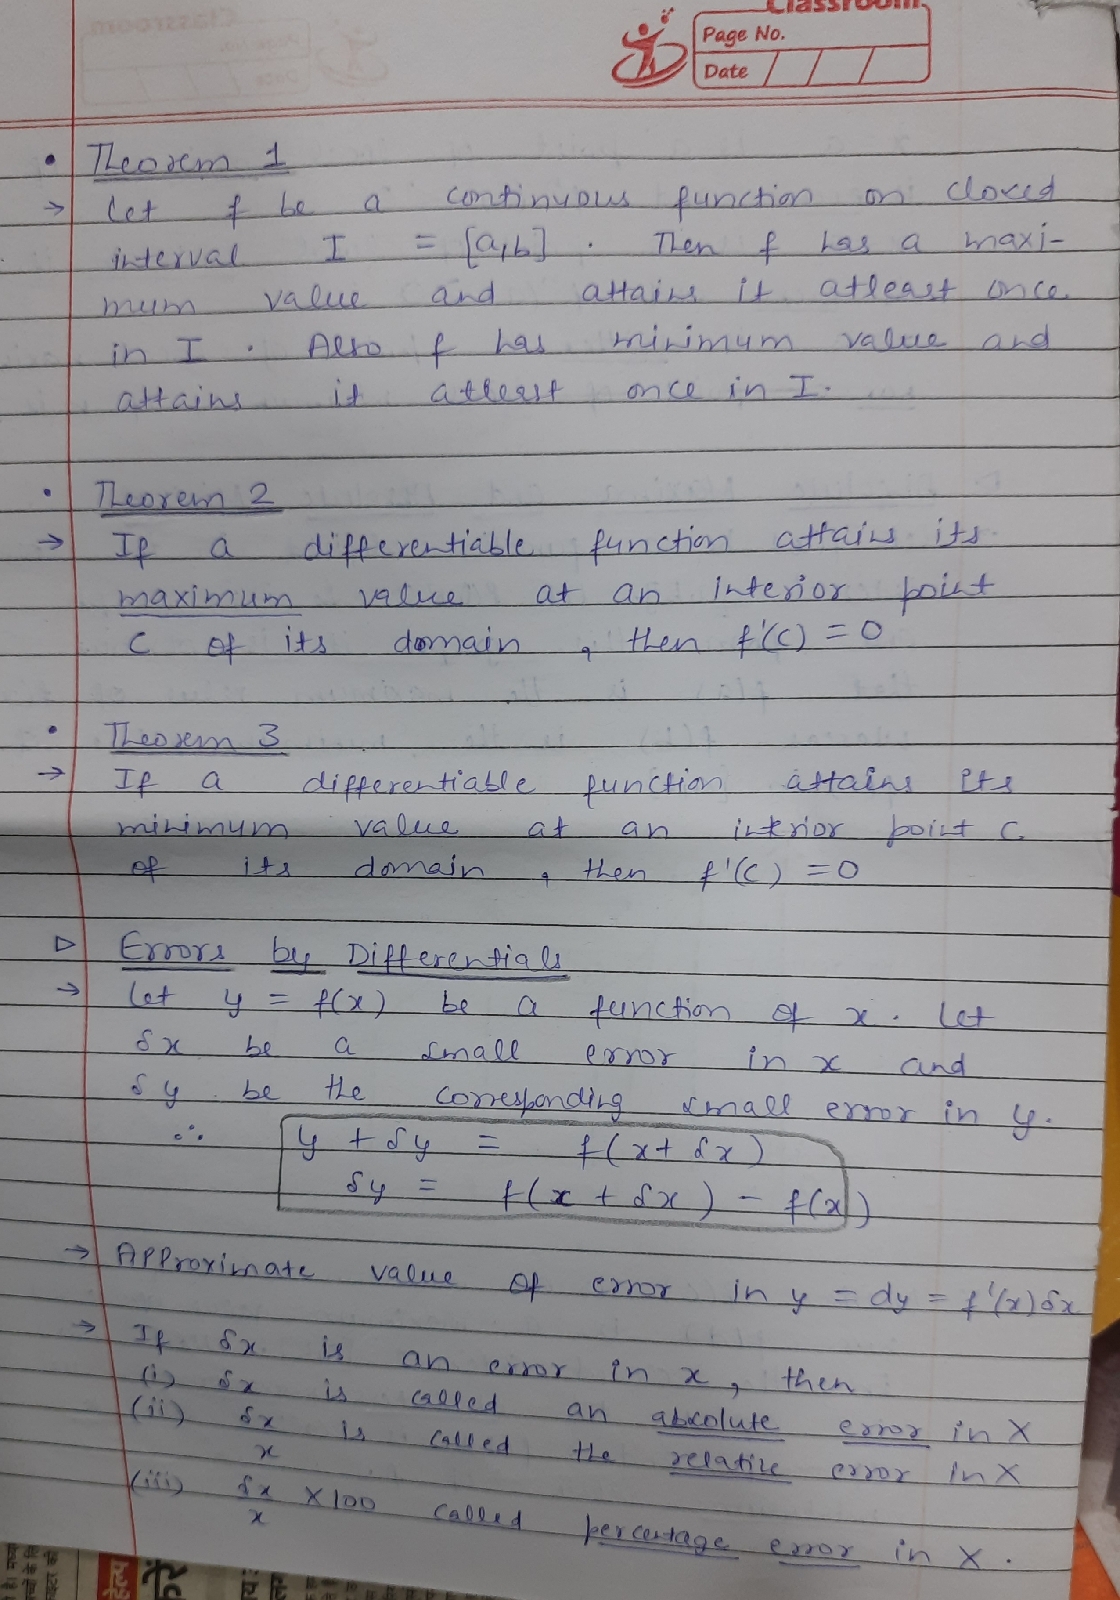 Classroom
Page No.
Date / / /
• Theorem 1
→ Let f be a continuous function on closed
interval I = [a,b] . Then f has a maxi-
mum value and attains it atleast once
in I . Also f has minimum value and
attains it atleast once in I.
• Theorem 2
→ If a differentiable function attains its
maximum value at an interior point
C of its domain , then f'(C) = 0
• Theorem 3
→ If a differentiable function attains its
minimum value at an intrior point C
of its domain , then f'(C) = 0
▷ Errors by Differentials
→ Let y = f(x) be a function of x . Let
δx be a small error in x and
δy be the corresponding small error in y.
∴ y + δy = f(x + δx)
δy = f(x + δx) - f(x)
→ Approximate value of error in y = dy = f'(x) δx
→ If δx is an error in x , then
(i) δx is called an absolute error in X
(ii) δx/x is called the relative error in X
(iii) δx/x × 100 called percentage error in X .
हेल्प